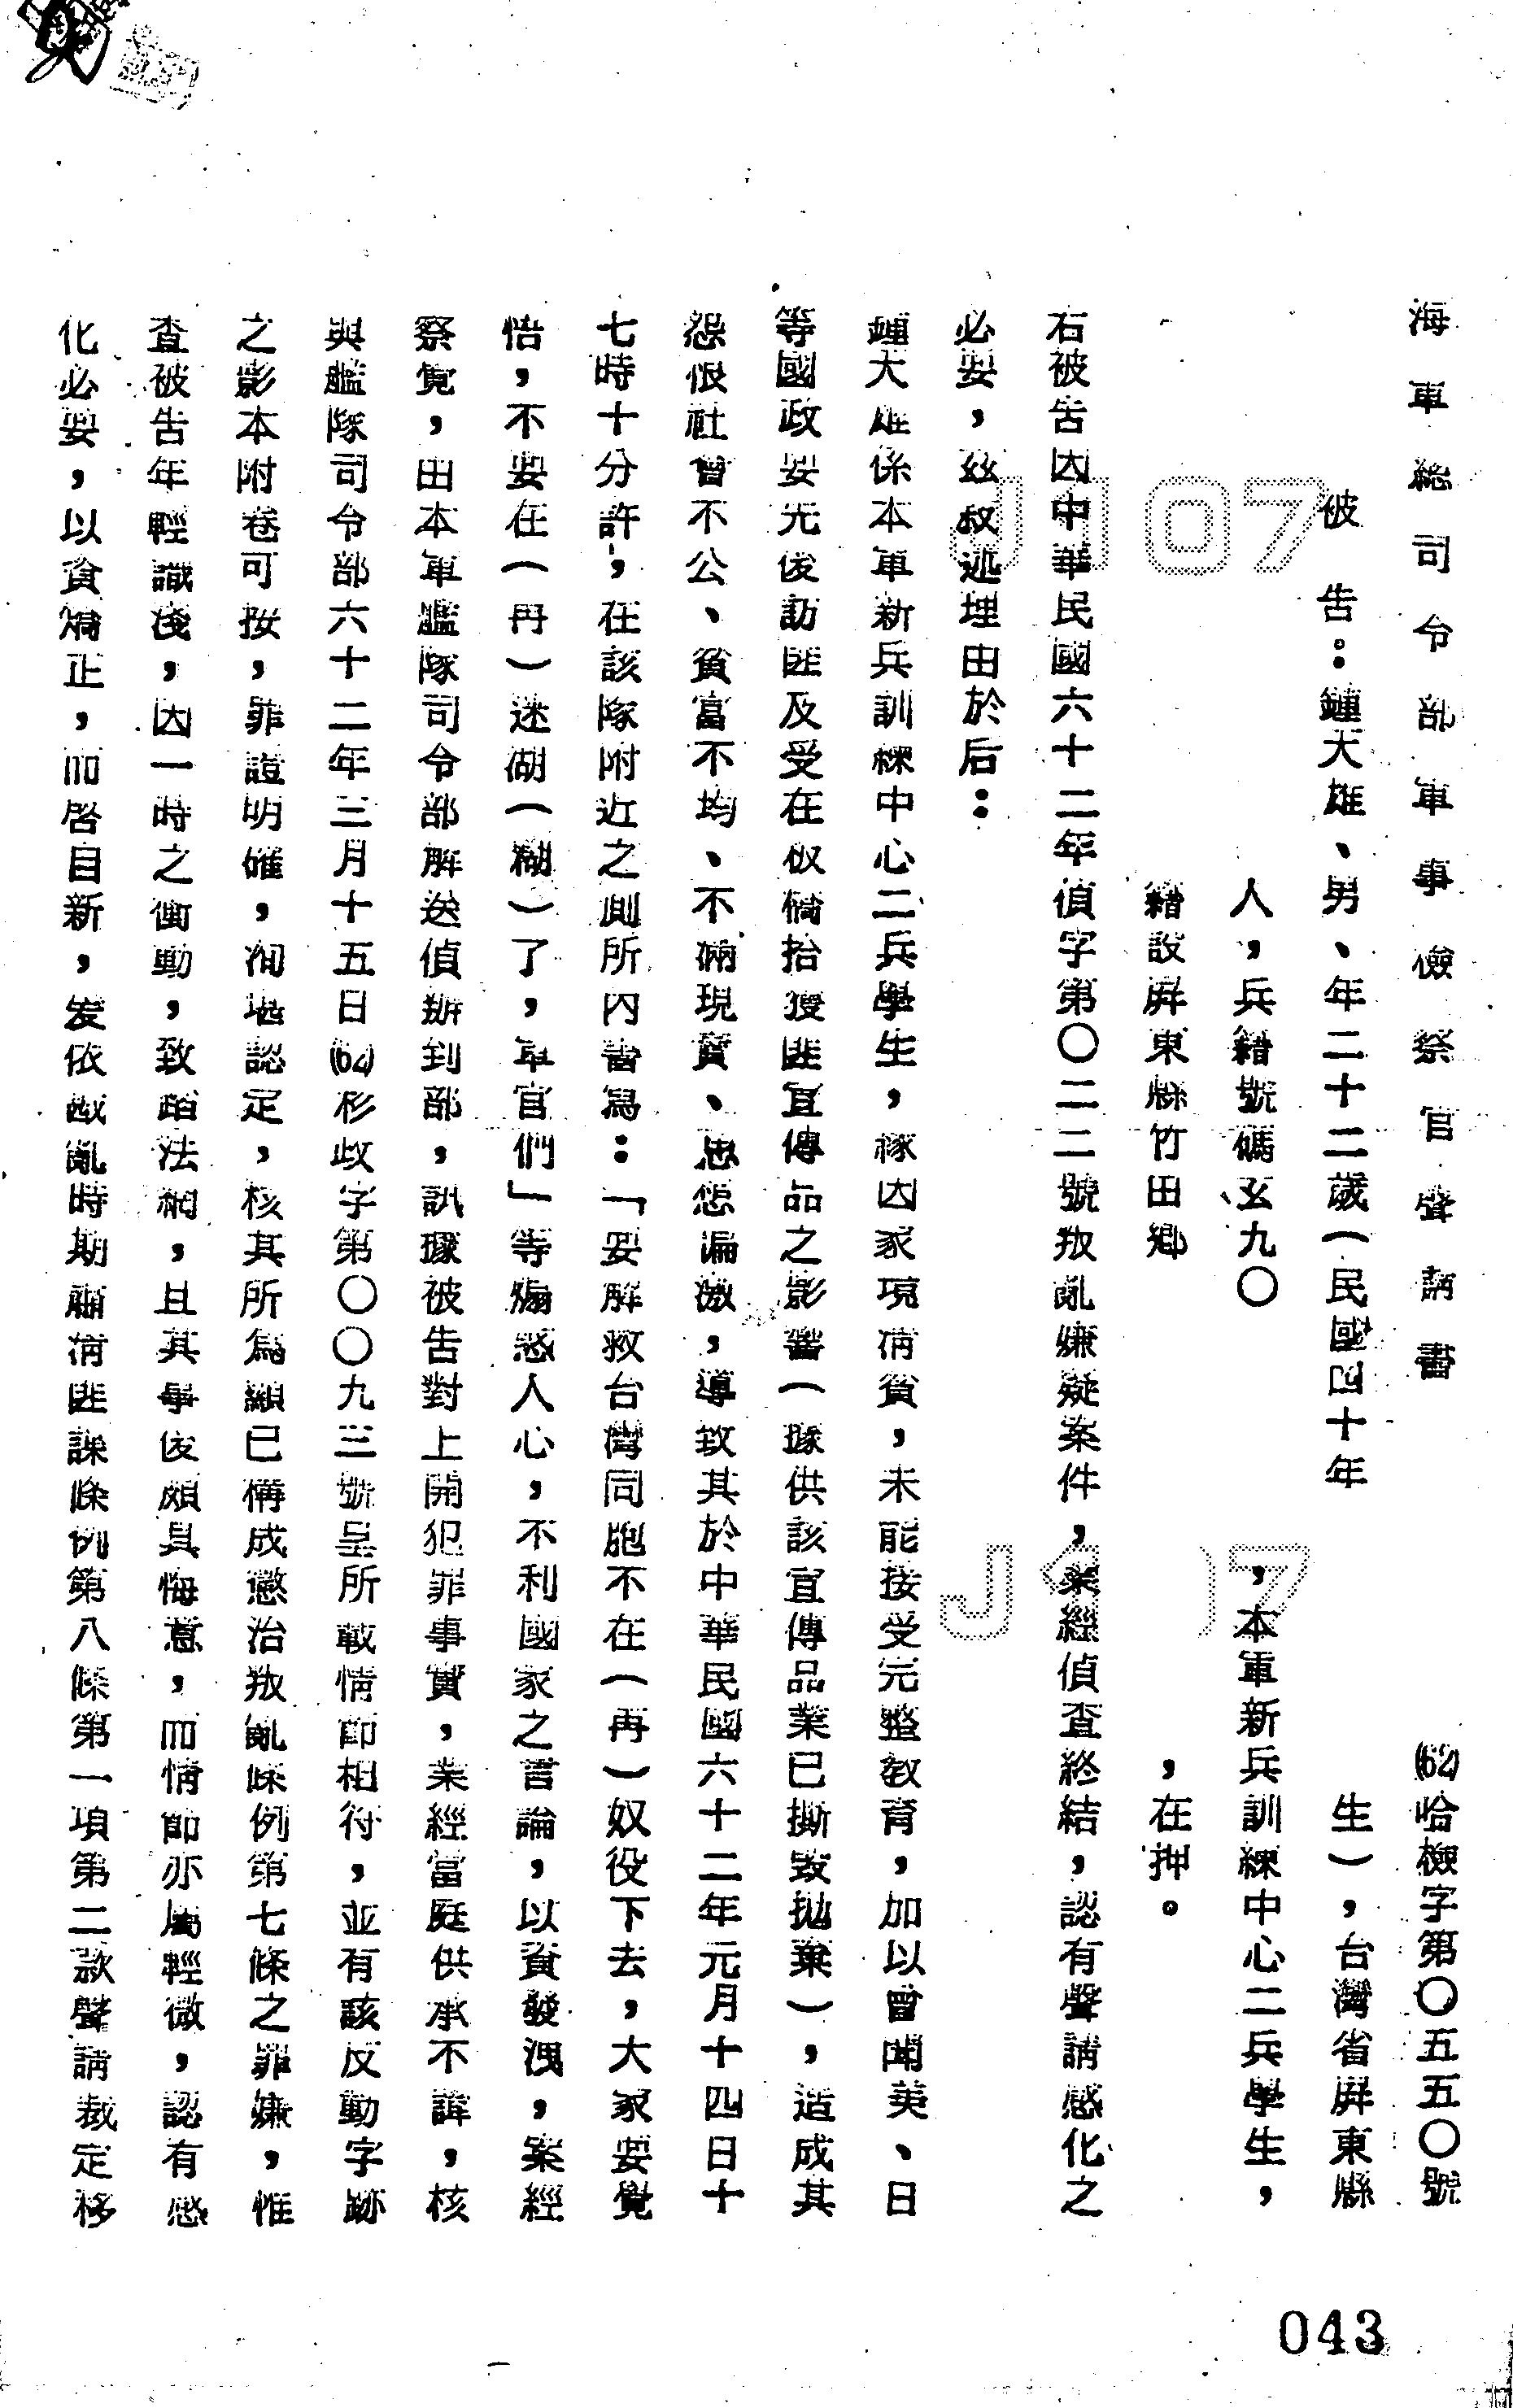 海軍總司令部軍事檢察官聲請書
(62)哈檢字第〇五五〇號
被告：鍾大雄、男、年二十二歲（民國四十年
生），台灣省屏東縣
人，兵籍號碼玄九〇
，本軍新兵訓練中心二兵學生，
籍設屏東縣竹田鄉
，在押。
右被告因中華民國六十二年偵字第〇二二號叛亂嫌疑案件，業經偵查終結，認有聲請感化之
必要，茲叙述理由於后：
鍾大雄係本軍新兵訓練中心二兵學生，緣因家境清貧，未能接受完整教育，加以曾聞美、日
等國政要先後訪匪及受在枋橋拾獲匪宣傳品之影響（據供該宣傳品業已撕毀拋棄），造成其
怨恨社會不公、貧富不均、不滿現實、思想偏激，導致其於中華民國六十二年元月十四日十
七時十分許，在該隊附近之廁所內書寫：「要解救台灣同胞不在（再）奴役下去，大家要覺
悟，不要在（再）迷湖（糊）了，軍官們」等煽惑人心，不利國家之言論，以資發洩，案經
察覺，由本軍艦隊司令部解送偵辦到部，訊據被告對上開犯罪事實，業經當庭供承不諱，核
與艦隊司令部六十二年三月十五日(62)彬政字第〇〇九三號呈所載情節相符，並有該反動字跡
之影本附卷可按，罪證明確，洵堪認定，核其所為顯已構成懲治叛亂條例第七條之罪嫌，惟
查被告年輕識淺，因一時之衝動，致蹈法網，且其事後頗具悔意，而情節亦屬輕微，認有感
化必要，以資矯正，而啓自新，爰依戡亂時期肅清匪諜條例第八條第一項第二款聲請裁定移
043
J107
J1 07